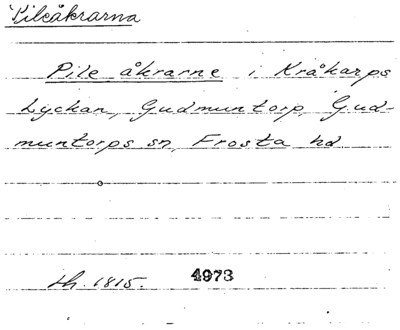 Pileåkrarna
Pile åkrarne i Kråkarps
Lyckan, Gudmuntorp, Gud-
muntorps sn, Frosta hd
h. 1815. 4973